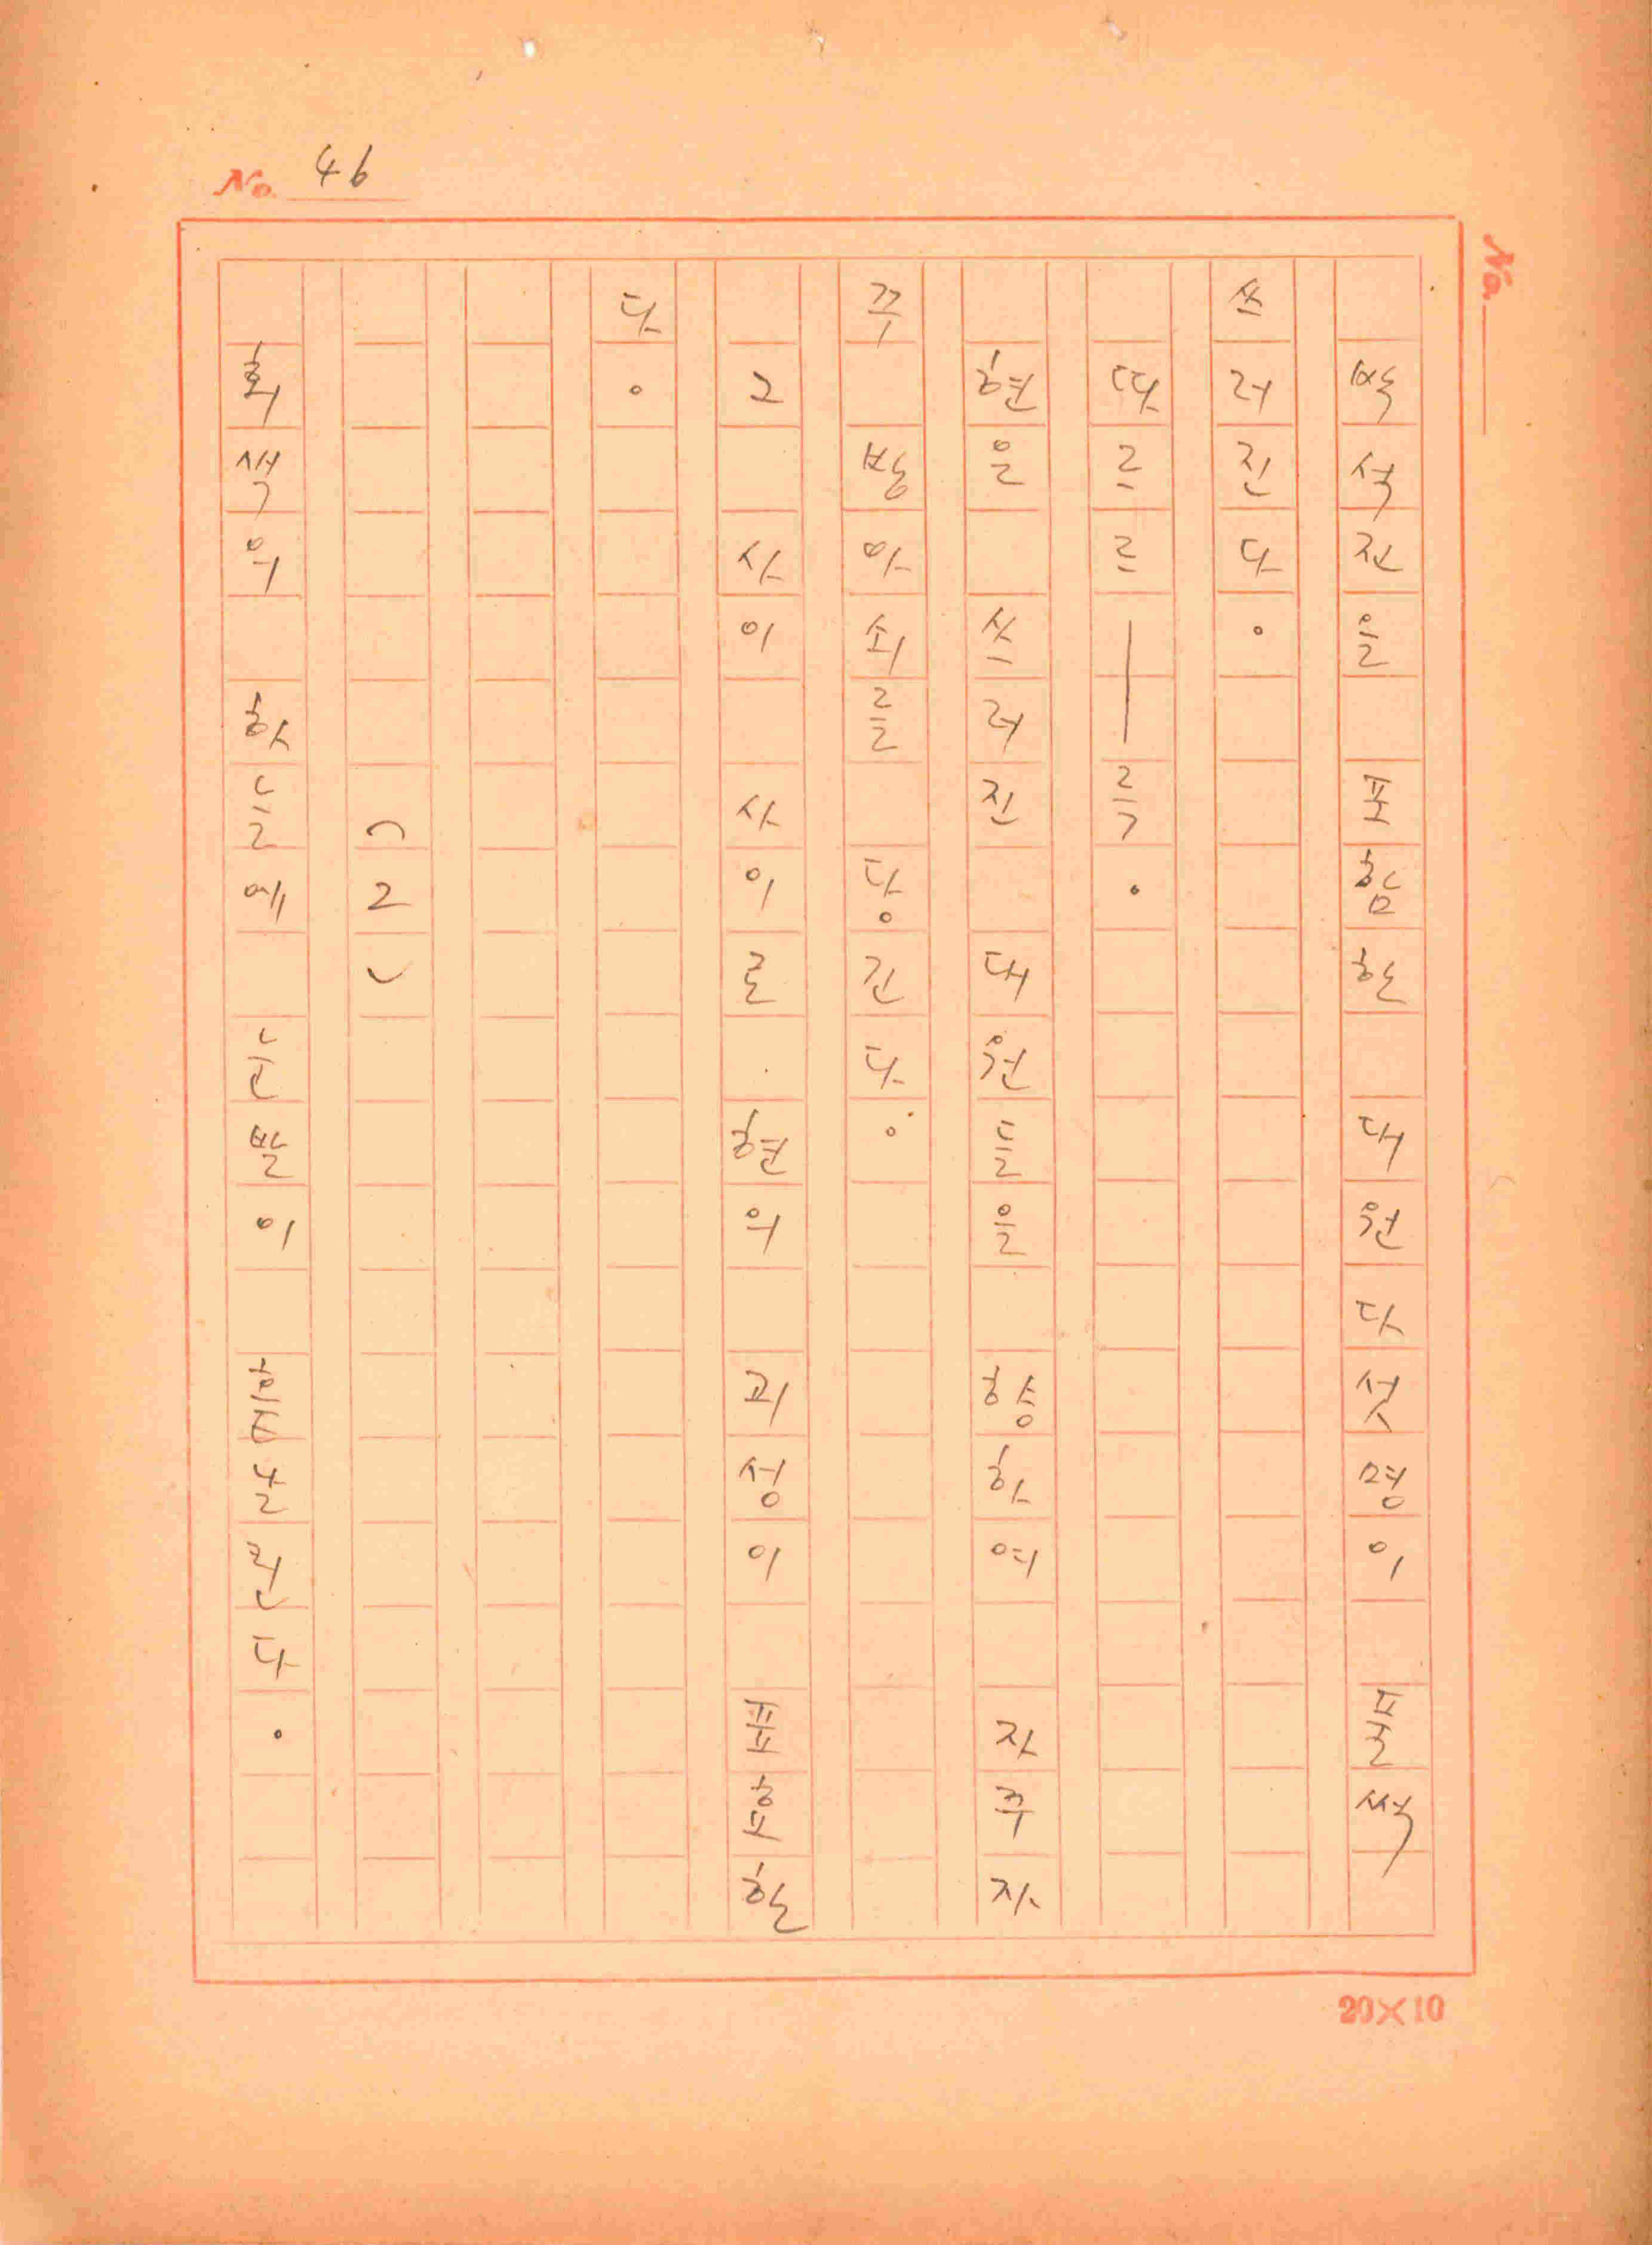 No. 46
No.
박석진을 포함한 대원 다섯명이 풀썩
쓰러진다.
따르르——륵.
현은 쓰러진 대원들을 향하여 자꾸자
꾸 방아쇠를 당긴다.
그 사이 사이로 현의 괴성이 처량한
다.
(2)
회색의 하늘에 눈발이 흩날린다.
20×10